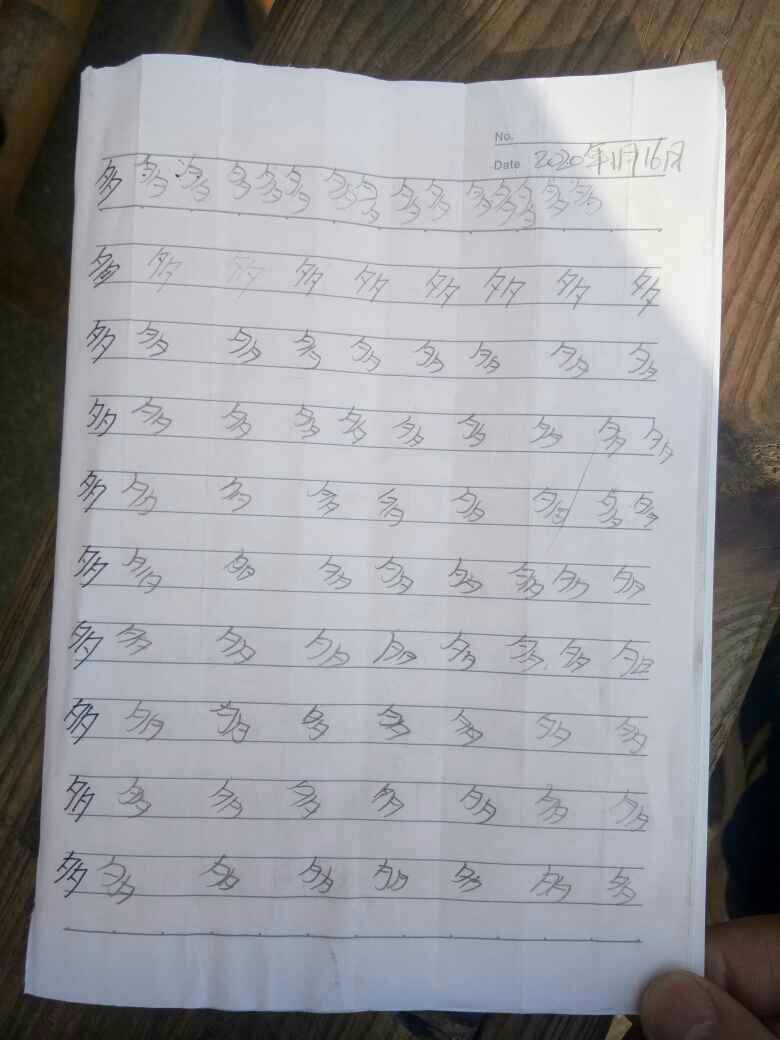 No.
Date 2020年1月16日
多 多 多 多 多 多 多 多 多 多 多 多 多 多 多
多 多 多 多 多 多 多 多 多
多 多 多 多 多 多 多 多 多
多 多 多 多 多 多 多 多 多 多
多 多 多 多 多 多 多 多 多
多 多 多 多 多 多 多 多 多
多 多 多 多 多 多 多 多 多
多 多 多 多 多 多 多 多
多 多 多 多 多 多 多 多
多 多 多 多 多 多 多 多